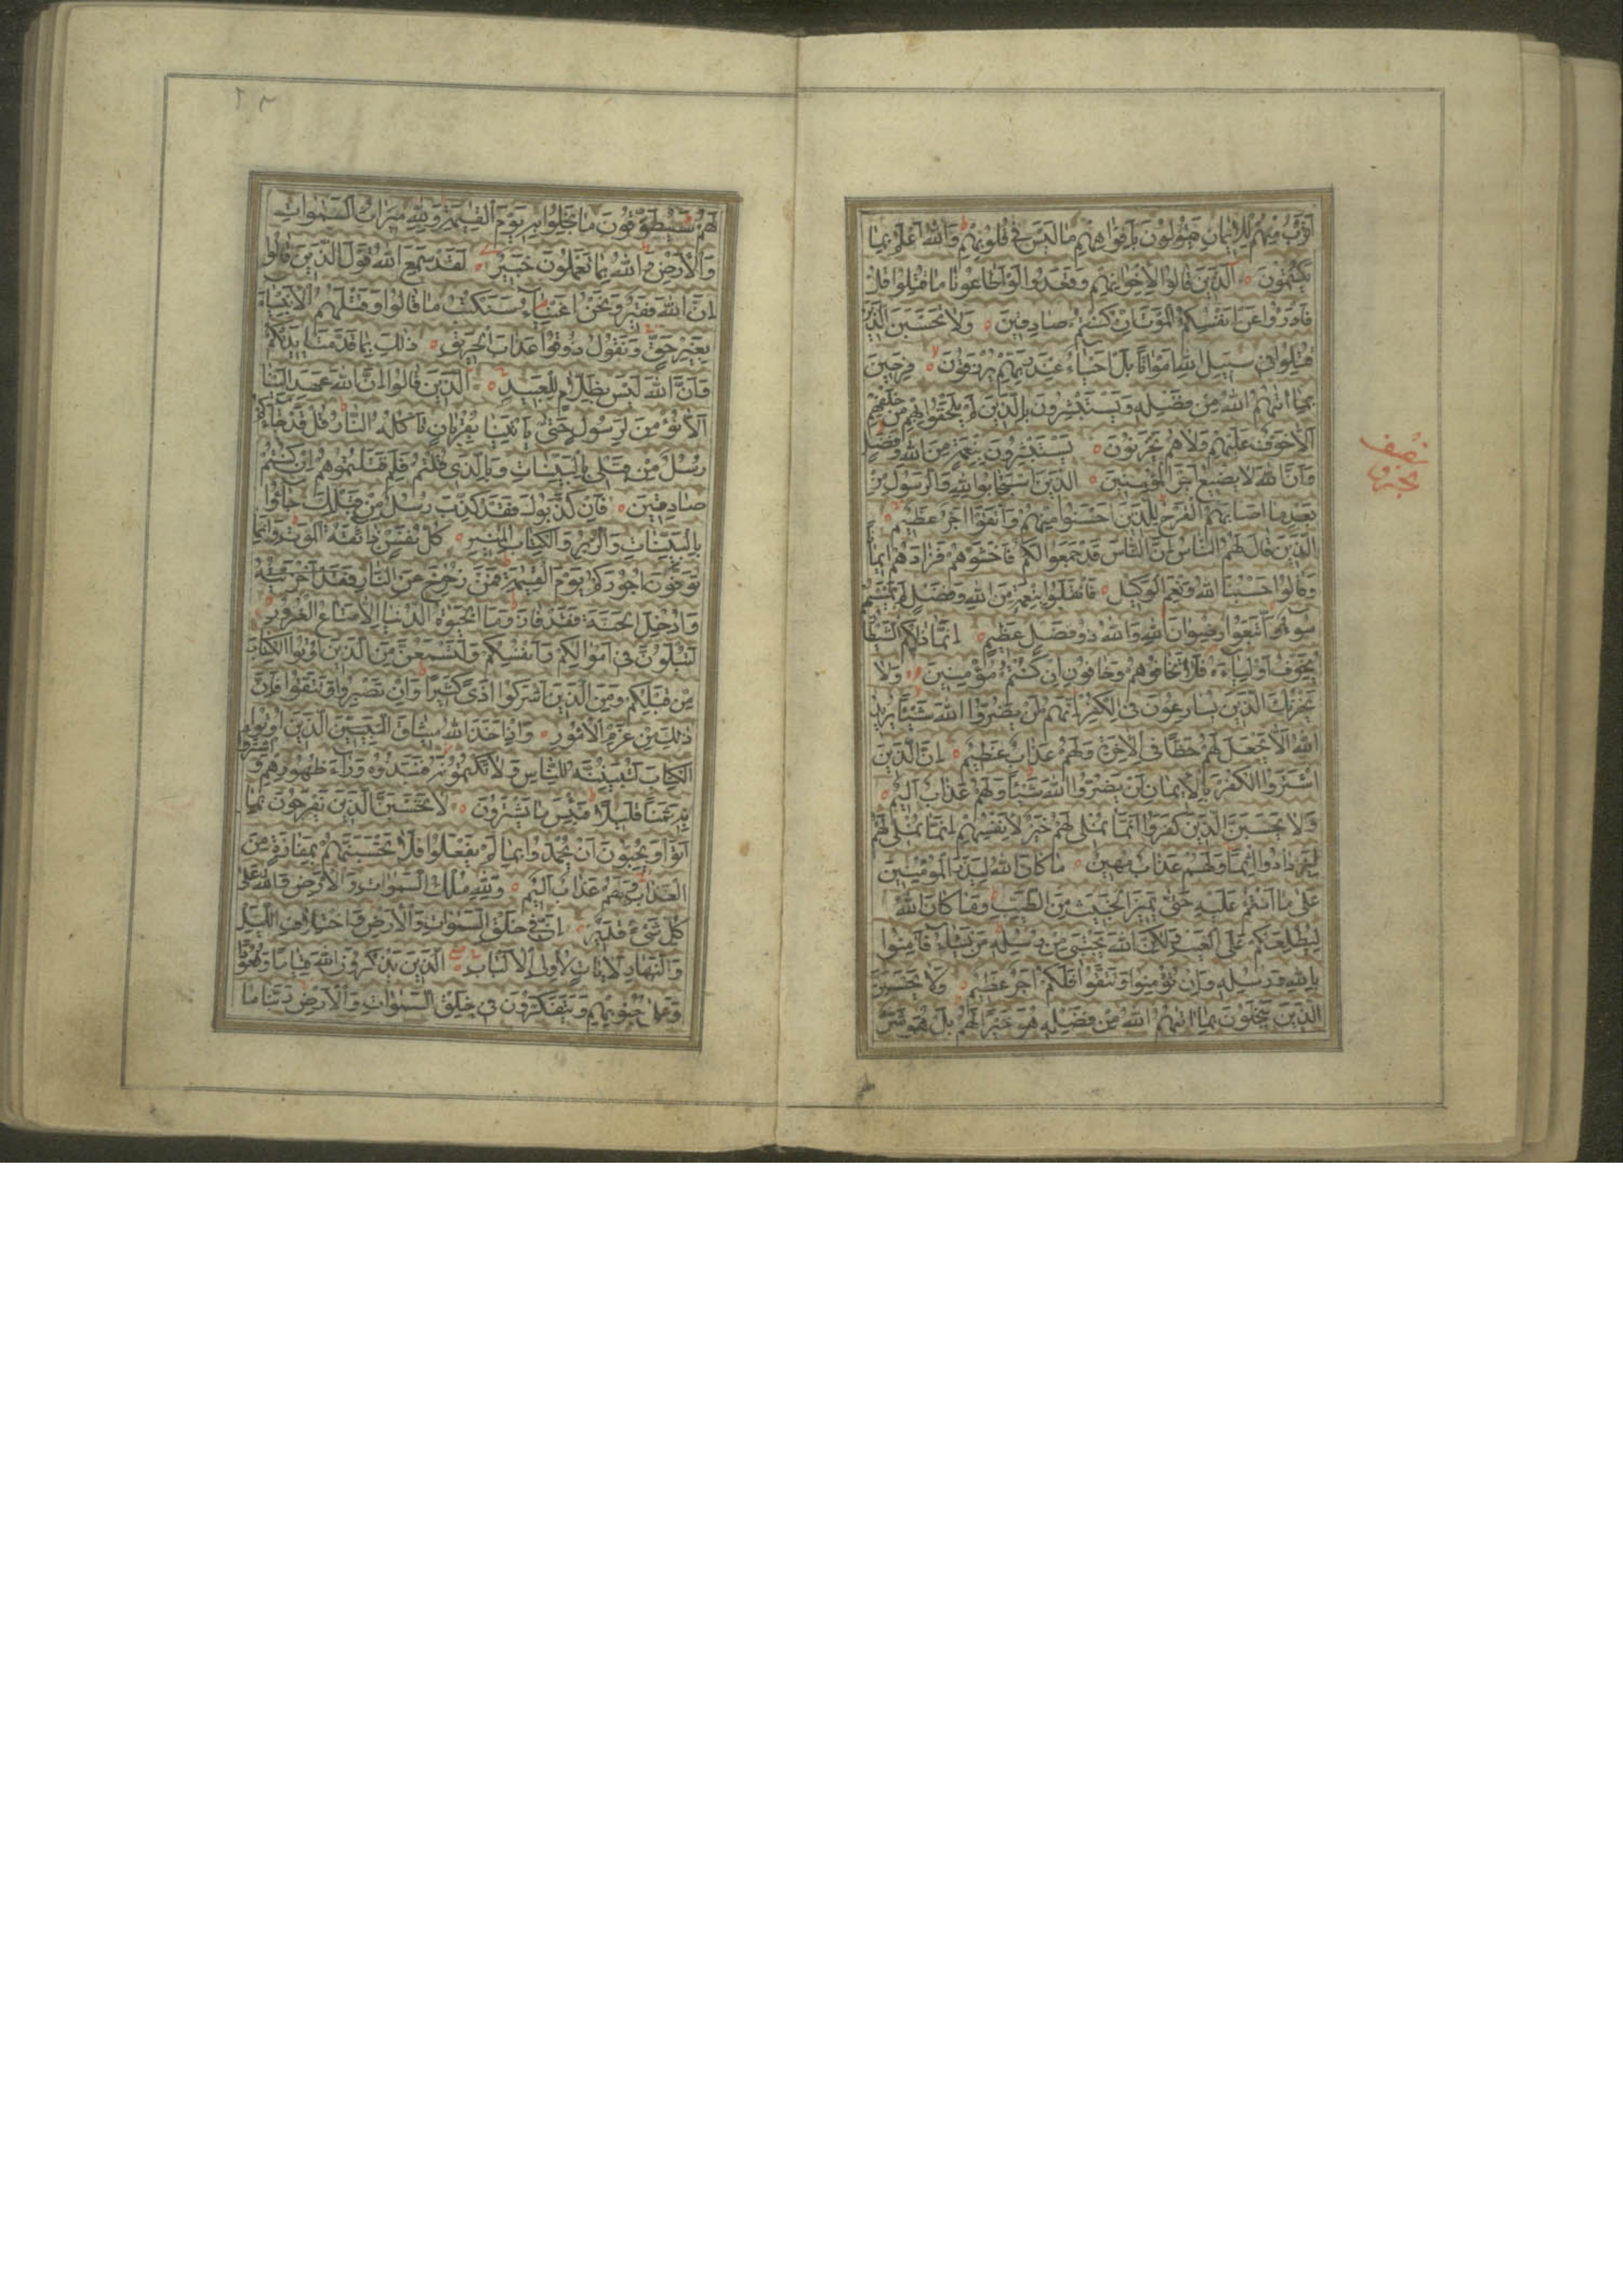 اَقْرَبُ مِنْهُمْ لِلْاِيمَانِ يَقُولُونَ بِاَفْوَاهِهِمْ مَا لَيْسَ فِي قُلُوبِهِمْ وَاللّٰهُ اَعْلَمُ بِمَا
يَكْتُمُونَ اَلَّذِينَ قَالُوا لِاِخْوَانِهِمْ وَقَعَدُوا لَوْ اَطَاعُونَا مَا قُتِلُوا قُلْ
فَادْرَؤُا عَنْ اَنْفُسِكُمُ الْمَوْتَ اِنْ كُنْتُمْ صَادِقِينَ وَلَا تَحْسَبَنَّ الَّذِينَ
قُتِلُوا فِي سَبِيلِ اللّٰهِ اَمْوَاتًا بَلْ اَحْيَاءٌ عِنْدَ رَبِّهِمْ يُرْزَقُونَ فَرِحِينَ
بِمَا اٰتٰيهُمُ اللّٰهُ مِنْ فَضْلِهِ وَيَسْتَبْشِرُونَ بِالَّذِينَ لَمْ يَلْحَقُوا بِهِمْ مِنْ خَلْفِهِمْ
اَلَّا خَوْفٌ عَلَيْهِمْ وَلَا هُمْ يَحْزَنُونَ يَسْتَبْشِرُونَ بِنِعْمَةٍ مِنَ اللّٰهِ وَفَضْلٍ
وَاَنَّ اللّٰهَ لَا يُضِيعُ اَجْرَ الْمُؤْمِنِينَ اَلَّذِينَ اسْتَجَابُوا لِلّٰهِ وَالرَّسُولِ مِنْ
بَعْدِ مَا اَصَابَهُمُ الْقَرْحُ لِلَّذِينَ اَحْسَنُوا مِنْهُمْ وَاتَّقَوْا اَجْرٌ عَظِيمٌ
اَلَّذِينَ قَالَ لَهُمُ النَّاسُ اِنَّ النَّاسَ قَدْ جَمَعُوا لَكُمْ فَاخْشَوْهُمْ فَزَادَهُمْ اِيمَانًا
وَقَالُوا حَسْبُنَا اللّٰهُ وَنِعْمَ الْوَكِيلُ فَانْقَلَبُوا بِنِعْمَةٍ مِنَ اللّٰهِ وَفَضْلٍ لَمْ يَمْسَسْهُمْ
سُوءٌ وَاتَّبَعُوا رِضْوَانَ اللّٰهِ وَاللّٰهُ ذُو فَضْلٍ عَظِيمٍ اِنَّمَا ذٰلِكُمُ الشَّيْطَانُ
يُخَوِّفُ اَوْلِيَاءَهُ فَلَا تَخَافُوهُمْ وَخَافُونِ اِنْ كُنْتُمْ مُؤْمِنِينَ وَلَا
يَحْزُنْكَ الَّذِينَ يُسَارِعُونَ فِي الْكُفْرِ اِنَّهُمْ لَنْ يَضُرُّوا اللّٰهَ شَيْئًا يُرِيدُ
اللّٰهُ اَلَّا يَجْعَلَ لَهُمْ حَظًّا فِي الْاٰخِرَةِ وَلَهُمْ عَذَابٌ عَظِيمٌ اِنَّ الَّذِينَ
اشْتَرَوُا الْكُفْرَ بِالْاِيمَانِ لَنْ يَضُرُّوا اللّٰهَ شَيْئًا وَلَهُمْ عَذَابٌ اَلِيمٌ
وَلَا يَحْسَبَنَّ الَّذِينَ كَفَرُوا اَنَّمَا نُمْلِي لَهُمْ خَيْرٌ لِاَنْفُسِهِمْ اِنَّمَا نُمْلِي لَهُمْ
لِيَزْدَادُوا اِثْمًا وَلَهُمْ عَذَابٌ مُهِينٌ مَا كَانَ اللّٰهُ لِيَذَرَ الْمُؤْمِنِينَ
عَلٰى مَا اَنْتُمْ عَلَيْهِ حَتّٰى يَمِيزَ الْخَبِيثَ مِنَ الطَّيِّبِ وَمَا كَانَ اللّٰهُ
لِيُطْلِعَكُمْ عَلَى الْغَيْبِ وَلٰكِنَّ اللّٰهَ يَجْتَبِي مِنْ رُسُلِهِ مَنْ يَشَاءُ فَاٰمِنُوا
بِاللّٰهِ وَرُسُلِهِ وَاِنْ تُؤْمِنُوا وَتَتَّقُوا فَلَكُمْ اَجْرٌ عَظِيمٌ وَلَا يَحْسَبَنَّ
الَّذِينَ يَبْخَلُونَ بِمَا اٰتٰيهُمُ اللّٰهُ مِنْ فَضْلِهِ هُوَ خَيْرًا لَهُمْ بَلْ هُوَ شَرٌّ
نصف
لَهُمْ سَيُطَوَّقُونَ مَا بَخِلُوا بِهِ يَوْمَ الْقِيٰمَةِ وَلِلّٰهِ مِيرَاثُ السَّمٰوَاتِ
وَالْاَرْضِ وَاللّٰهُ بِمَا تَعْمَلُونَ خَبِيرٌ لَقَدْ سَمِعَ اللّٰهُ قَوْلَ الَّذِينَ قَالُوا
اِنَّ اللّٰهَ فَقِيرٌ وَنَحْنُ اَغْنِيَاءُ سَنَكْتُبُ مَا قَالُوا وَقَتْلَهُمُ الْاَنْبِيَاءَ
بِغَيْرِ حَقٍّ وَنَقُولُ ذُوقُوا عَذَابَ الْحَرِيقِ ذٰلِكَ بِمَا قَدَّمَتْ اَيْدِيكُمْ
وَاَنَّ اللّٰهَ لَيْسَ بِظَلَّامٍ لِلْعَبِيدِ اَلَّذِينَ قَالُوا اِنَّ اللّٰهَ عَهِدَ اِلَيْنَا
اَلَّا نُؤْمِنَ لِرَسُولٍ حَتّٰى يَاْتِيَنَا بِقُرْبَانٍ تَاْكُلُهُ النَّارُ قُلْ قَدْ جَاءَكُمْ
رُسُلٌ مِنْ قَبْلِي بِالْبَيِّنَاتِ وَبِالَّذِي قُلْتُمْ فَلِمَ قَتَلْتُمُوهُمْ اِنْ كُنْتُمْ
صَادِقِينَ فَاِنْ كَذَّبُوكَ فَقَدْ كُذِّبَ رُسُلٌ مِنْ قَبْلِكَ جَاؤُا
بِالْبَيِّنَاتِ وَالزُّبُرِ وَالْكِتَابِ الْمُنِيرِ كُلُّ نَفْسٍ ذَائِقَةُ الْمَوْتِ وَاِنَّمَا
تُوَفَّوْنَ اُجُورَكُمْ يَوْمَ الْقِيٰمَةِ فَمَنْ زُحْزِحَ عَنِ النَّارِ
وَاُدْخِلَ الْجَنَّةَ فَقَدْ فَازَ وَمَا الْحَيٰوةُ الدُّنْيَا اِلَّا مَتَاعُ الْغُرُورِ
لَتُبْلَوُنَّ فِي اَمْوَالِكُمْ وَاَنْفُسِكُمْ وَلَتَسْمَعُنَّ مِنَ الَّذِينَ اُوتُوا الْكِتَابَ
مِنْ قَبْلِكُمْ وَمِنَ الَّذِينَ اَشْرَكُوا اَذًى كَثِيرًا وَاِنْ تَصْبِرُوا وَتَتَّقُوا فَاِنَّ
ذٰلِكَ مِنْ عَزْمِ الْاُمُورِ وَاِذْ اَخَذَ اللّٰهُ مِيثَاقَ الَّذِينَ اُوتُوا
الْكِتَابَ لَتُبَيِّنُنَّهُ لِلنَّاسِ وَلَا تَكْتُمُونَهُ فَنَبَذُوهُ وَرَاءَ ظُهُورِهِمْ وَاشْتَرَوْا
بِهِ ثَمَنًا قَلِيلًا فَبِئْسَ مَا يَشْتَرُونَ لَا تَحْسَبَنَّ الَّذِينَ يَفْرَحُونَ بِمَا
اَتَوْا وَيُحِبُّونَ اَنْ يُحْمَدُوا بِمَا لَمْ يَفْعَلُوا فَلَا تَحْسَبَنَّهُمْ بِمَفَازَةٍ مِنَ
الْعَذَابِ وَلَهُمْ عَذَابٌ اَلِيمٌ وَلِلّٰهِ مُلْكُ السَّمٰوَاتِ وَالْاَرْضِ وَاللّٰهُ عَلٰى
كُلِّ شَيْءٍ قَدِيرٌ اِنَّ فِي خَلْقِ السَّمٰوَاتِ وَالْاَرْضِ وَاخْتِلَافِ اللَّيْلِ
وَالنَّهَارِ لَاٰيَاتٍ لِاُولِي الْاَلْبَابِ اَلَّذِينَ يَذْكُرُونَ اللّٰهَ قِيَامًا وَقُعُودًا
وَعَلٰى جُنُوبِهِمْ وَيَتَفَكَّرُونَ فِي خَلْقِ السَّمٰوَاتِ وَالْاَرْضِ رَبَّنَا مَا